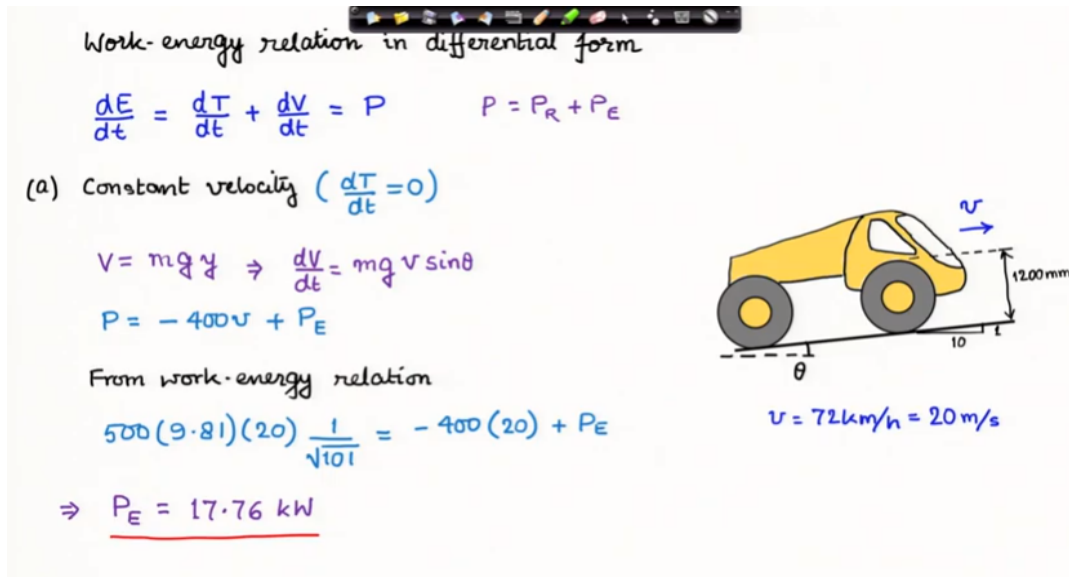 Work-energy relation in differential form
dE/dt = dT/dt + dV/dt = P    P = P_R + P_E
(a) Constant velocity (dT/dt = 0)
V = mgy ⇒ dV/dt = mg v sinθ
P = - 400v + P_E
From work-energy relation
500(9.81)(20) 1/√101 = - 400(20) + P_E
⇒ P_E = 17.76 kW
v
1200mm
1
10
θ
v = 72km/h = 20m/s